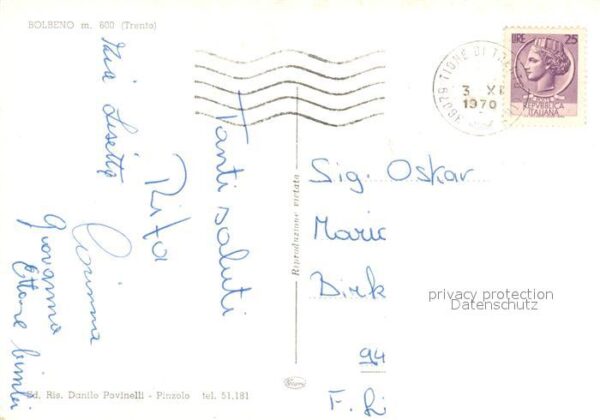 BOLBENO m. 600 (Trento)
LIRE 25
REPUBBLICA
ITALIANA
38079 TIONE DI TREN
3 XI
1970
Tanti saluti
Rita
Corinna
Zia Lisetta
Giovanna
Ettore bimbi
Riproduzione vietata
Sig. Oskar
Marie
Dirk
94
F. Li
privacy protection
Datenschutz
Ed. Ris. Danilo Povinelli - Pinzolo tel. 51.181